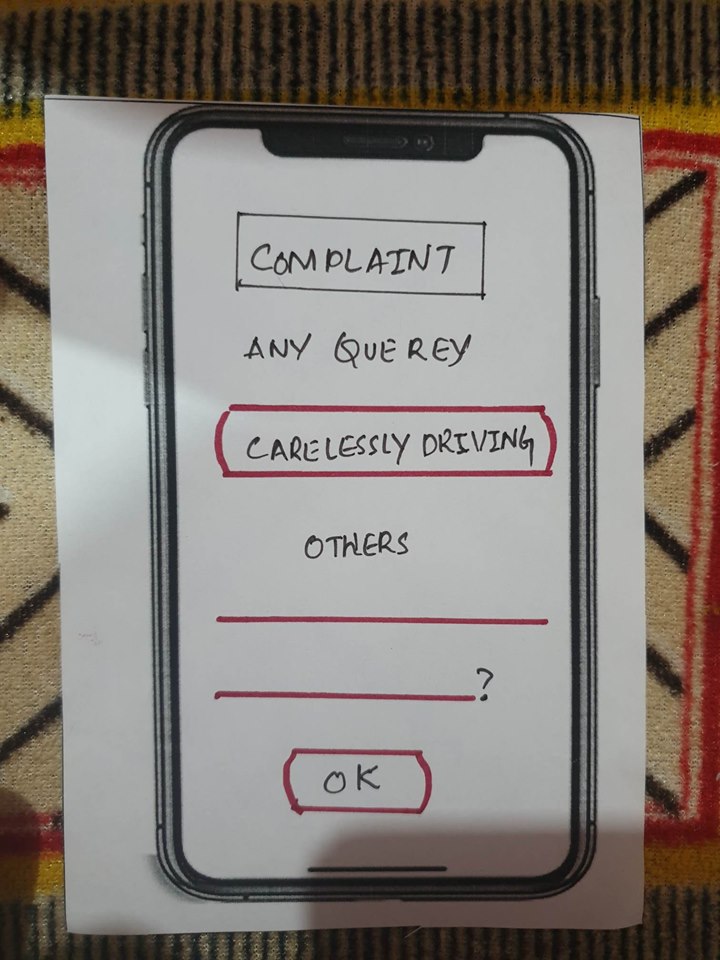 COMPLAINT
ANY QUEREY
CARELESSLY DRIVING
OTHERS
?
OK